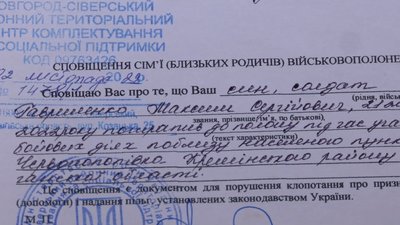 НОВГОРОД-СІВЕРСЬКИЙ
ЙОННИЙ ТЕРИТОРІАЛЬНИЙ
ЕНТР КОМПЛЕКТУВАННЯ
СОЦІАЛЬНОЇ ПІДТРИМКИ
КОД 09763426
СПОВІЩЕННЯ СІМ'Ї (БЛИЗЬКИХ РОДИЧІВ) ВІЙСЬКОВОПОЛОНЕ
листопада 20
Сповіщаю Вас про те, що Ваш син, солдат
(рідня, військ
Гавриленко Максим Сергійович,
звання, прізвище, ім'я, по батькові)
потрапив до полону під час
(текст характеристики)
бойових діях поблизу населеного пунк
Червонопопівка Кремінського району
області
Це сповіщення є документом для порушення клопотання про приз
(допомоги) і надання пільг, установлених законодавством України.
М.П.